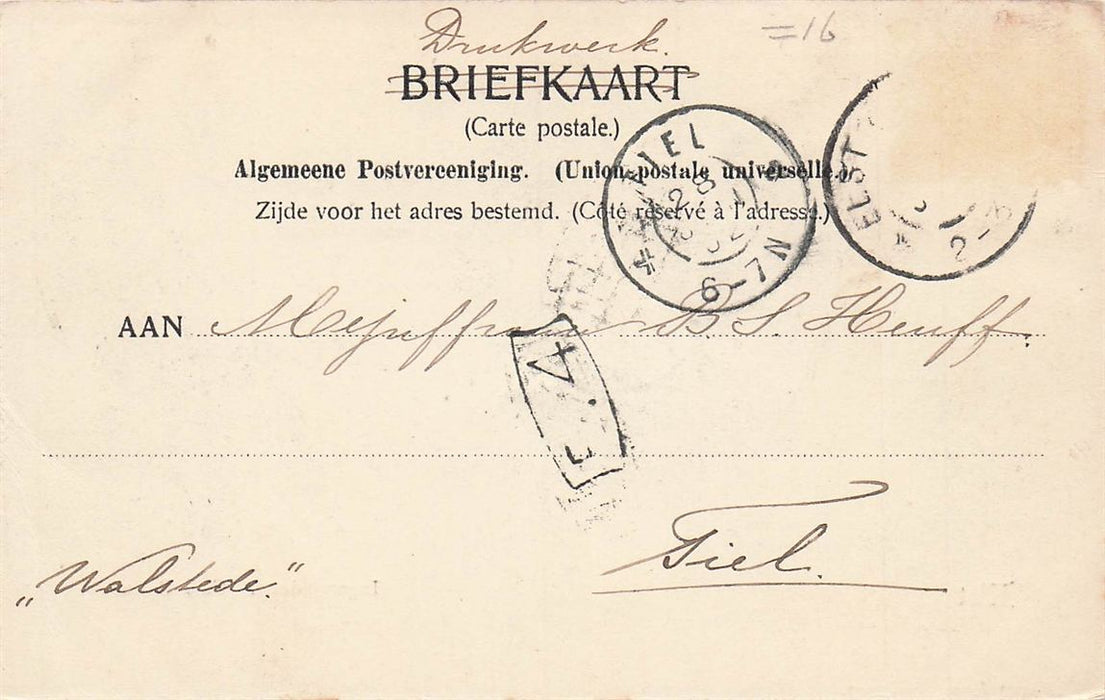 =16
Drukwerk.
BRIEFKAART
(Carte postale.)
Algemeene Postvereeniging. (Union postale universelle.)
Zijde voor het adres bestemd. (Côté réservé à l'adresse.)
TIEL
28
6-7N
ELST
2-3
AAN Mejuffrouw B. S. Heuff.
4
Tiel.
„Walstede."